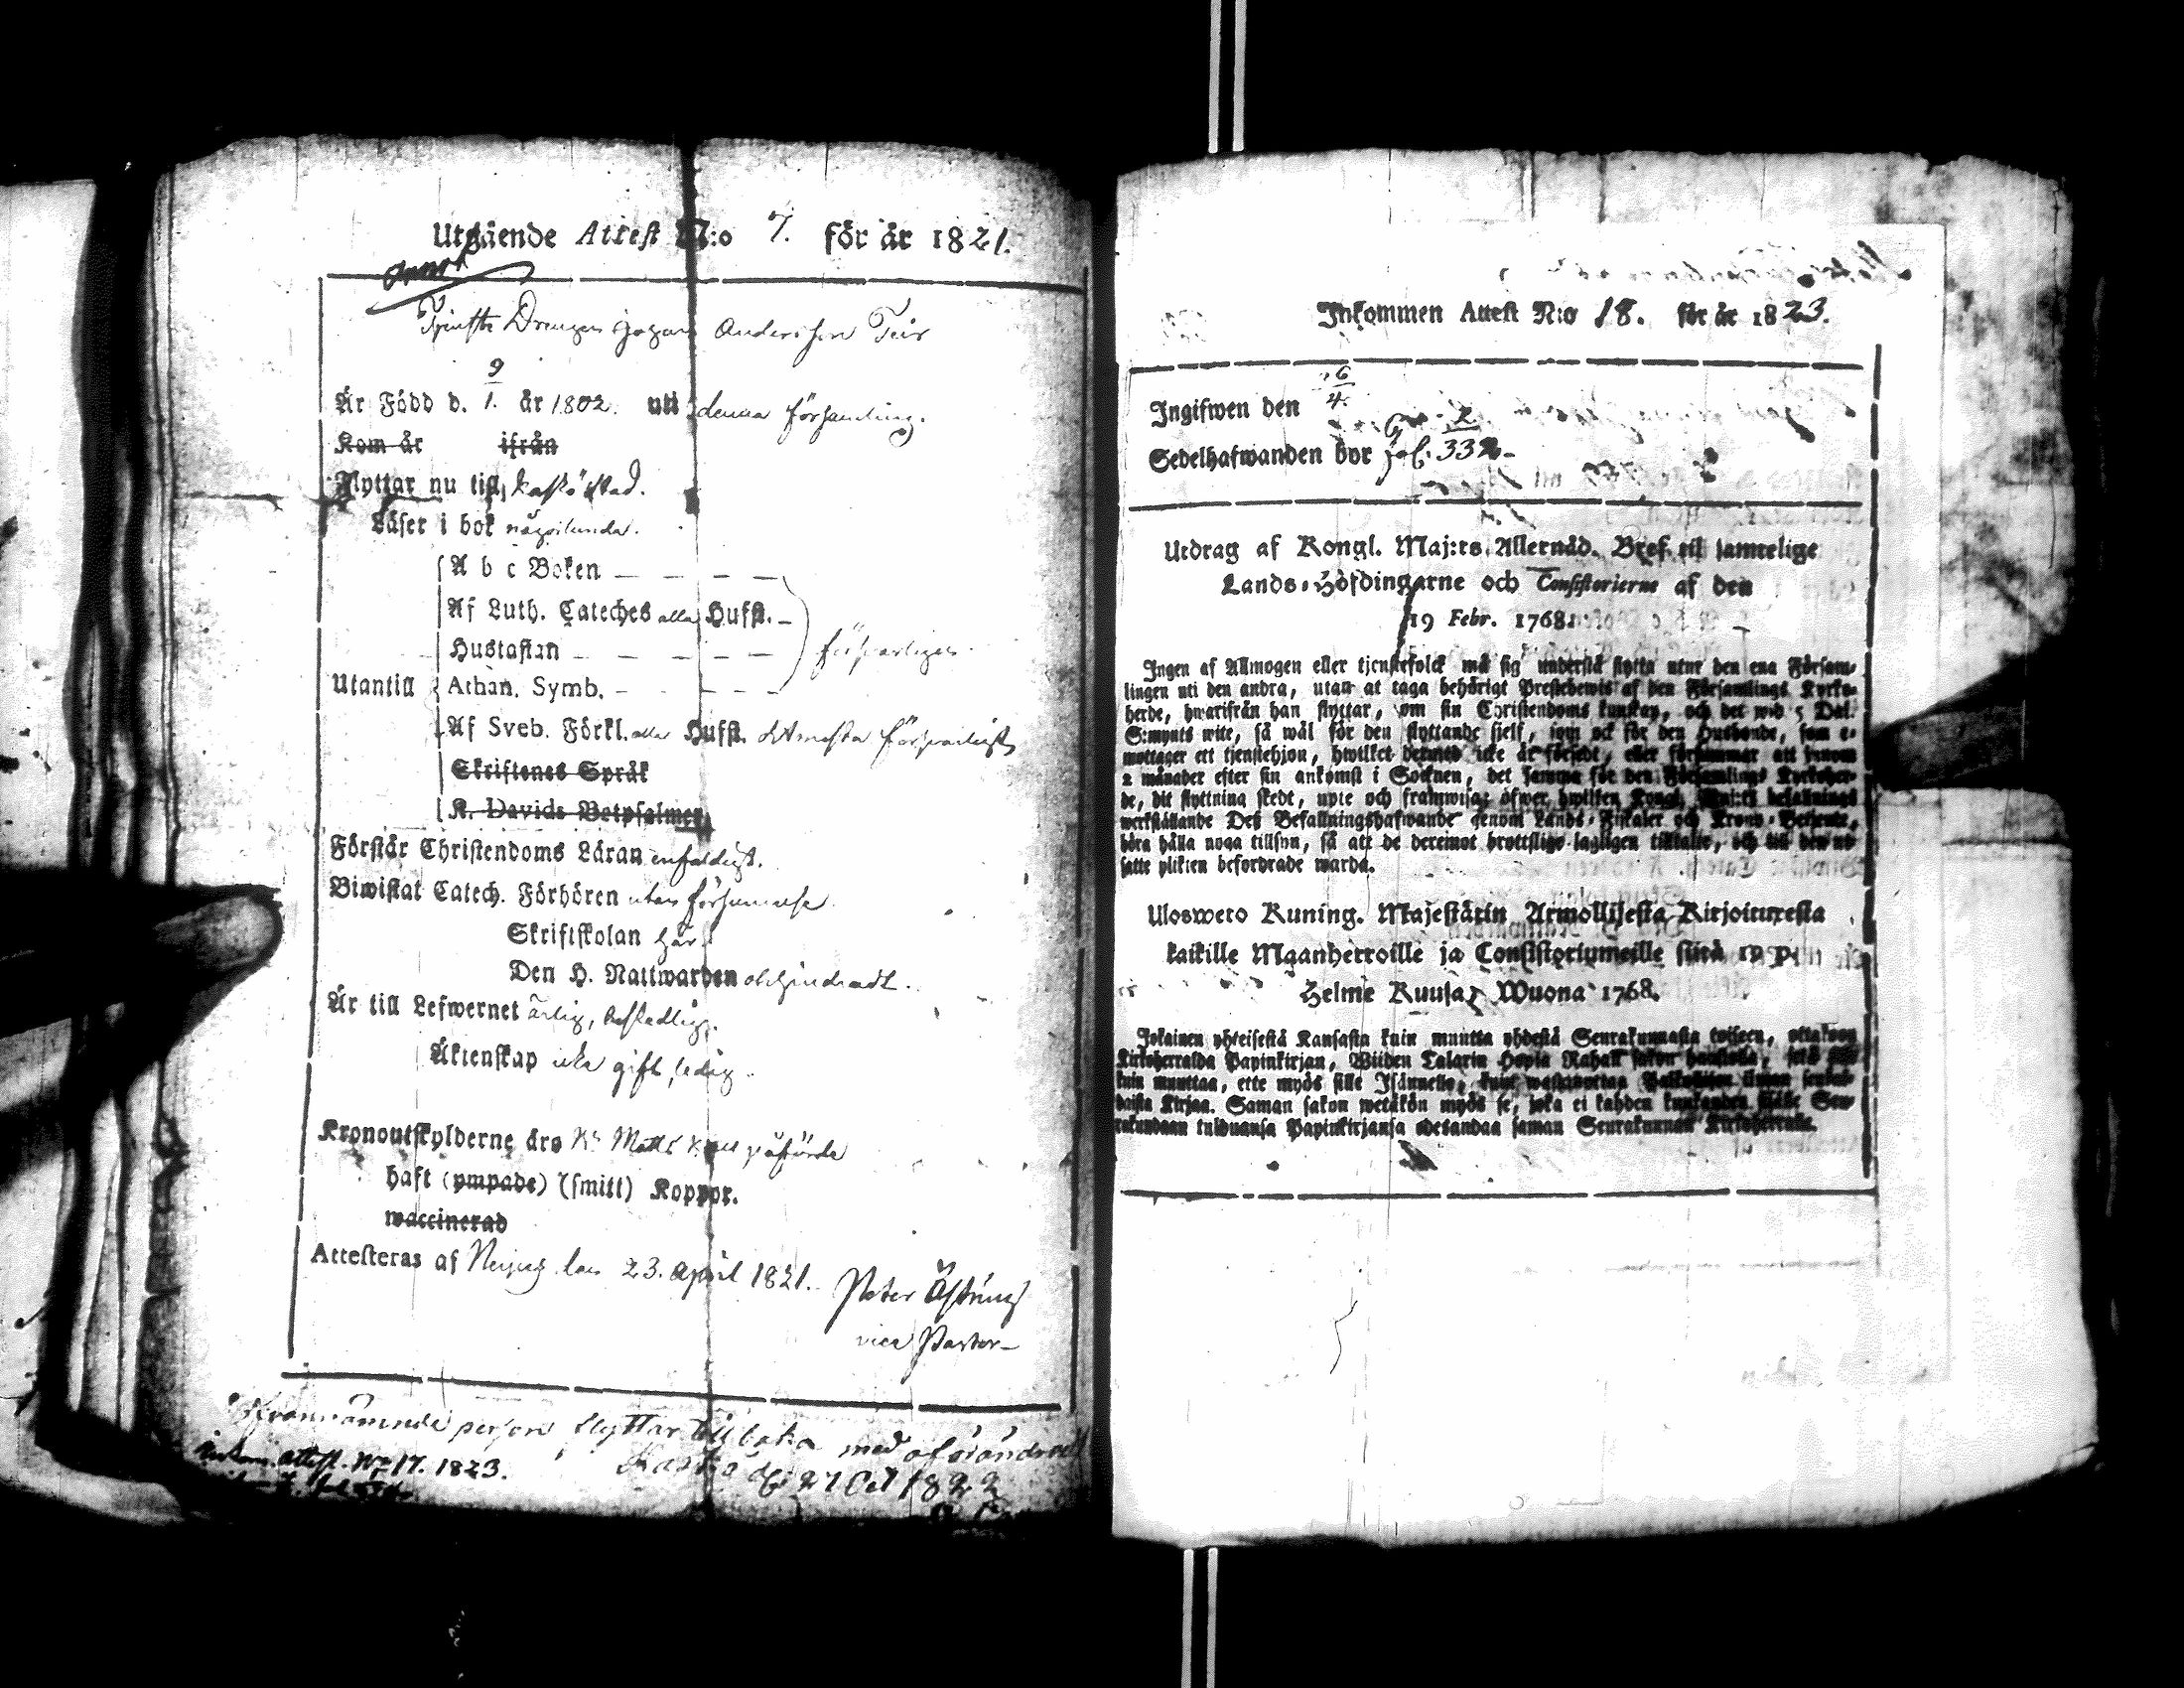 Utgående Attest N:o 7. för år 1821.
Tjenste Drengen Johan Andersson Teir
Är Född d. 9/1. år 1802. uti denna församling.
Kom år ifrån
Flyttar nu till Kaskö Stad.
Läser i bok någorlunda.
A b c Boken
Af Luth. Cateches alla Hufst.
Hustaflan
försvarligen.
Utantill
Athan. Symb.
Af Sveb. Förkl. alla Hufst. det mesta försvarligt
Skriftenes Språk
K. Davids Botpsalmer
Förstår Christendoms Läran enfaldigt.
Biwistat Catech. Förhören utan försummelse
Skriftskolan här.
Den H. Nattwarden obehindradt.
Är till Lefwernet ärlig, beskedlig.
Äktenskap icke gift, ledig.
Kronoutskylderne äro påförde
haft (ympade) (smitt) Koppor.
waccinerad
Attesteras af 23. April 1821.
Peter
vice Pastor
person flyttar tillbaka med oförändrad
Kaskö d. 27 Oct 1822
attest. No 17. 1823.
Inkommen Attest N:o 18. för år 1823.
Ingifwen den 6/4.
Sedelhafwanden bor fol. 332
Utdrag af Kongl. Maj:ts. Allernåd. Bref til samtelige
Lands-Höfdingarne och Consistorierne af den
19 Febr. 1768.
Ingen af Allmogen eller tjenstefolck må sig understå flytta utur den ena Försam-
lingen uti den andra, utan at taga behörigt Prestebewis af den Församlings Kyrko-
herde, hwarifrån han flyttar, om sin Christendoms kunskap, och det wid 5 Dal.
S:mynts wite, så wäl för den flyttande sjelf, som ock för den Husbonde, som e-
mottager ett tjenstehjon, hwilket dermed icke är försedt, eller försummar att innom
2 månader efter sin ankomst i Socknen, det samma för den Församlings Kyrkoher-
de, dit flyttning skedt, upte och framwisa; öfwer hwilken Kongl. Maj:ts befallnings
werkställande Deß Befallningshafwande genom Lands-Fiskaler och Krono-Betjente,
böra hålla noga tillsyn, så att de deremot brottslige lagligen tilltalte, och till den ut-
satte plikten befordrade warda.
Ulosweto Kuning. Majestätin Armollisesta Kirjoituxesta
kaikille Maanherroille ja Consistoriumeille siitä 19 p:
Helme Kuusa, Wuona 1768.
Jokainen yhteisestä Kansasta kuin muutta yhdestä Seurakunnasta toiseen, ottakoon
Kirkoherralda Papinkirjan, Wiiden Talarin Hopia Rahan sakon haastolla, sekä
kuin muuttaa, ette myös sille Isännelle, kuin wastanottaa Palkollisen ilman
daista Kirjaa. Saman sakon wetäkön myös se, joka ei kahden kuukauden sisälle Seu-
rakundaan tulduansa Papinkirjansa edesandaa saman Seurakunnan Kirkoherralle.